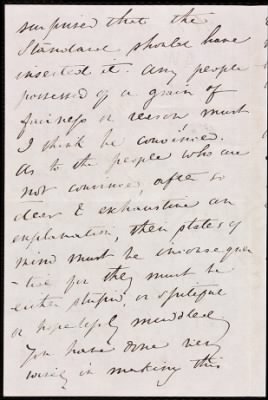 surprised that the
Standard should have
inserted it. Any people
possessed of a grain of
fairness or reason must
I think be convinced.
As to the people who are
not convinced, after so
clear & exhaustive an
explanation, their state of
mind must be inconsequen
-tial for they must be
either stupid, or
or hopelessly muddled
You have done very
wisely in making this